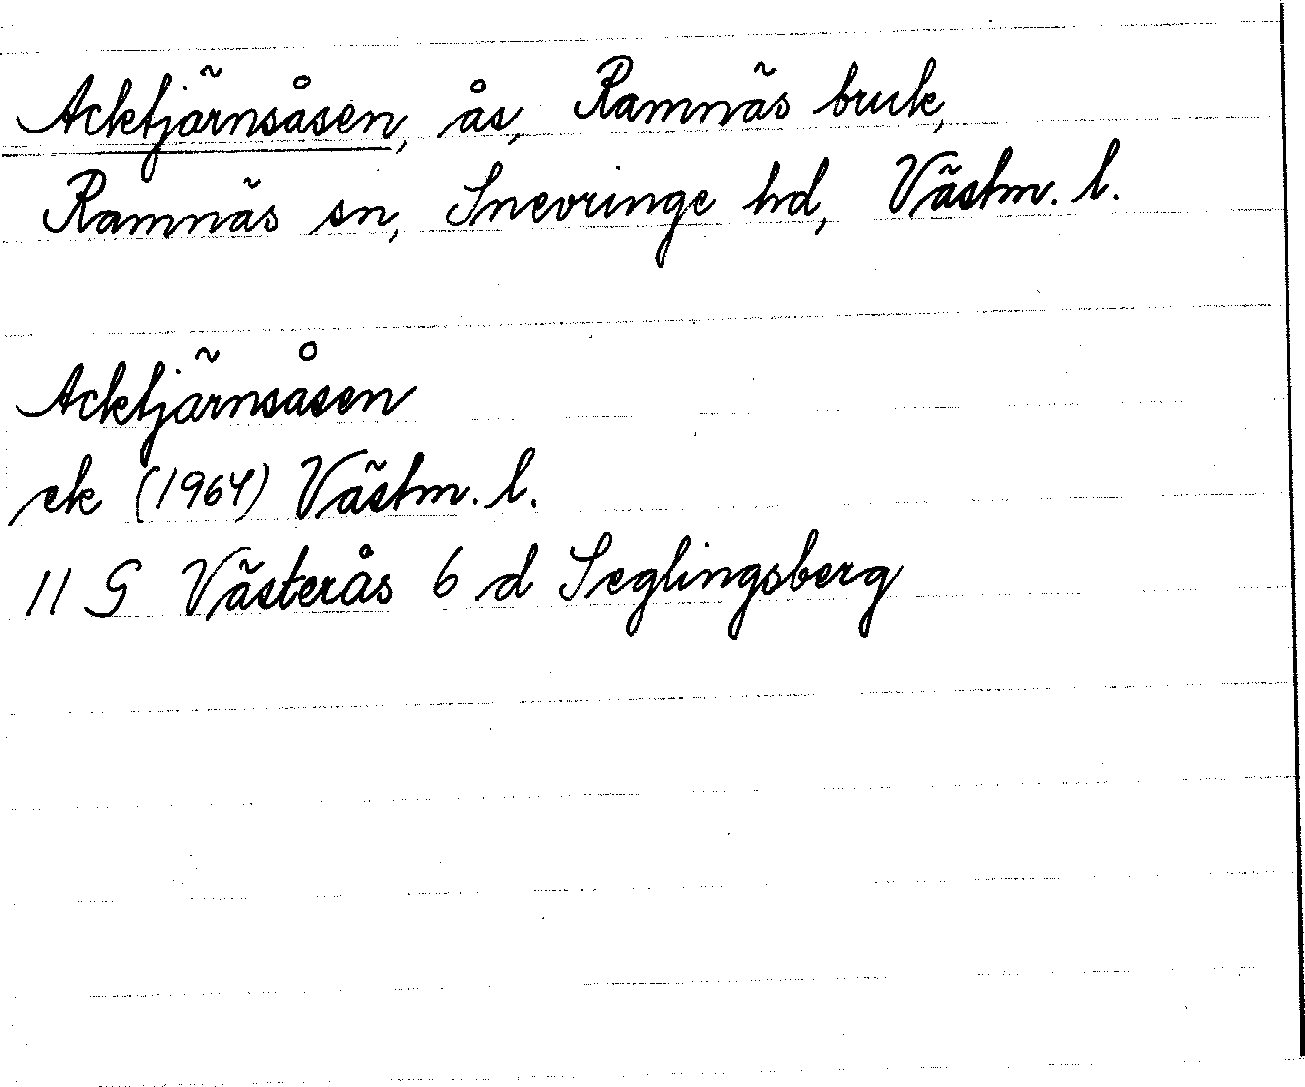 Acktjärnsåsen, ås, Ramnäs bruk,
Ramnäs sn, Snevringe hd, Västm. l.
Acktjärnsåsen
ek (1964) Västm. l.
11 G Västerås 6 d Seglingsberg